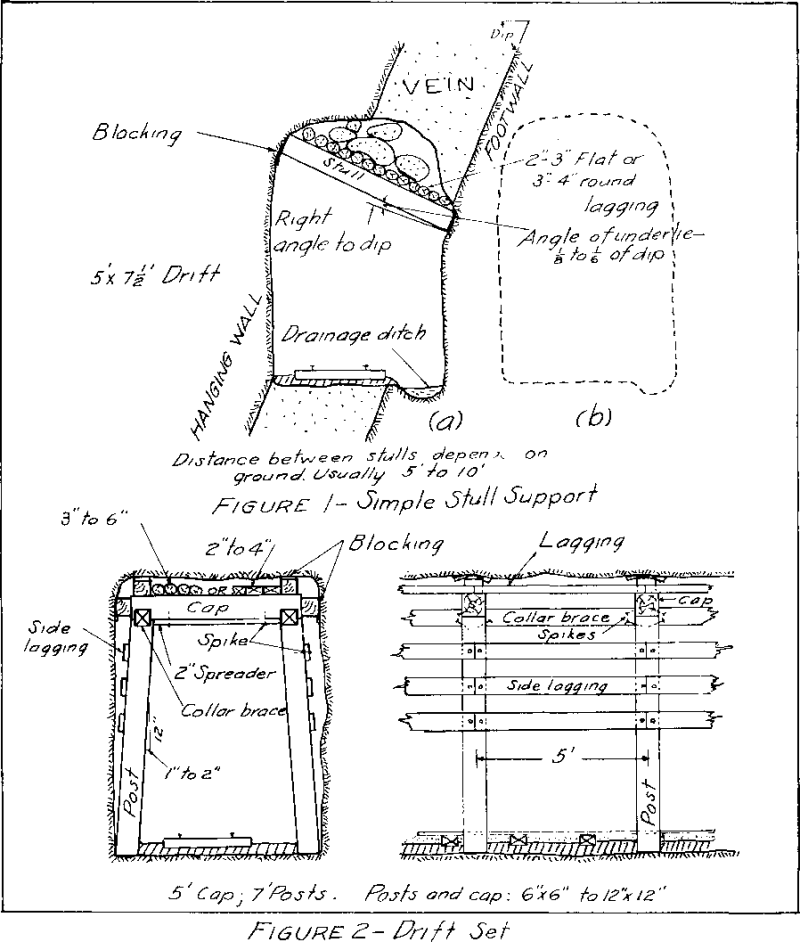 Dip
VEIN
FOOTWALL
Blocking
Stull
2"-3" Flat or
3"-4" round
lagging
Right
angle to dip
Angle of underlie-
1/8 to 1/6 of dip
5' x 7 1/2' Drift
HANGING WALL
Drainage ditch
(a)
(b)
Distance between stulls depend on
ground. Usually 5' to 10'
FIGURE 1- Simple Stull Support
3" to 6"
2" to 4"
Blocking
Lagging
OR
Cap
Cap
Collar brace
Spikes
Side
lagging
Spike
2" Spreader
Collar brace
Side lagging
12"
1" to 2"
5'
Post
Post
5' Cap; 7' Posts. Posts and cap: 6"x6" to 12"x12"
FIGURE 2- Drift Set